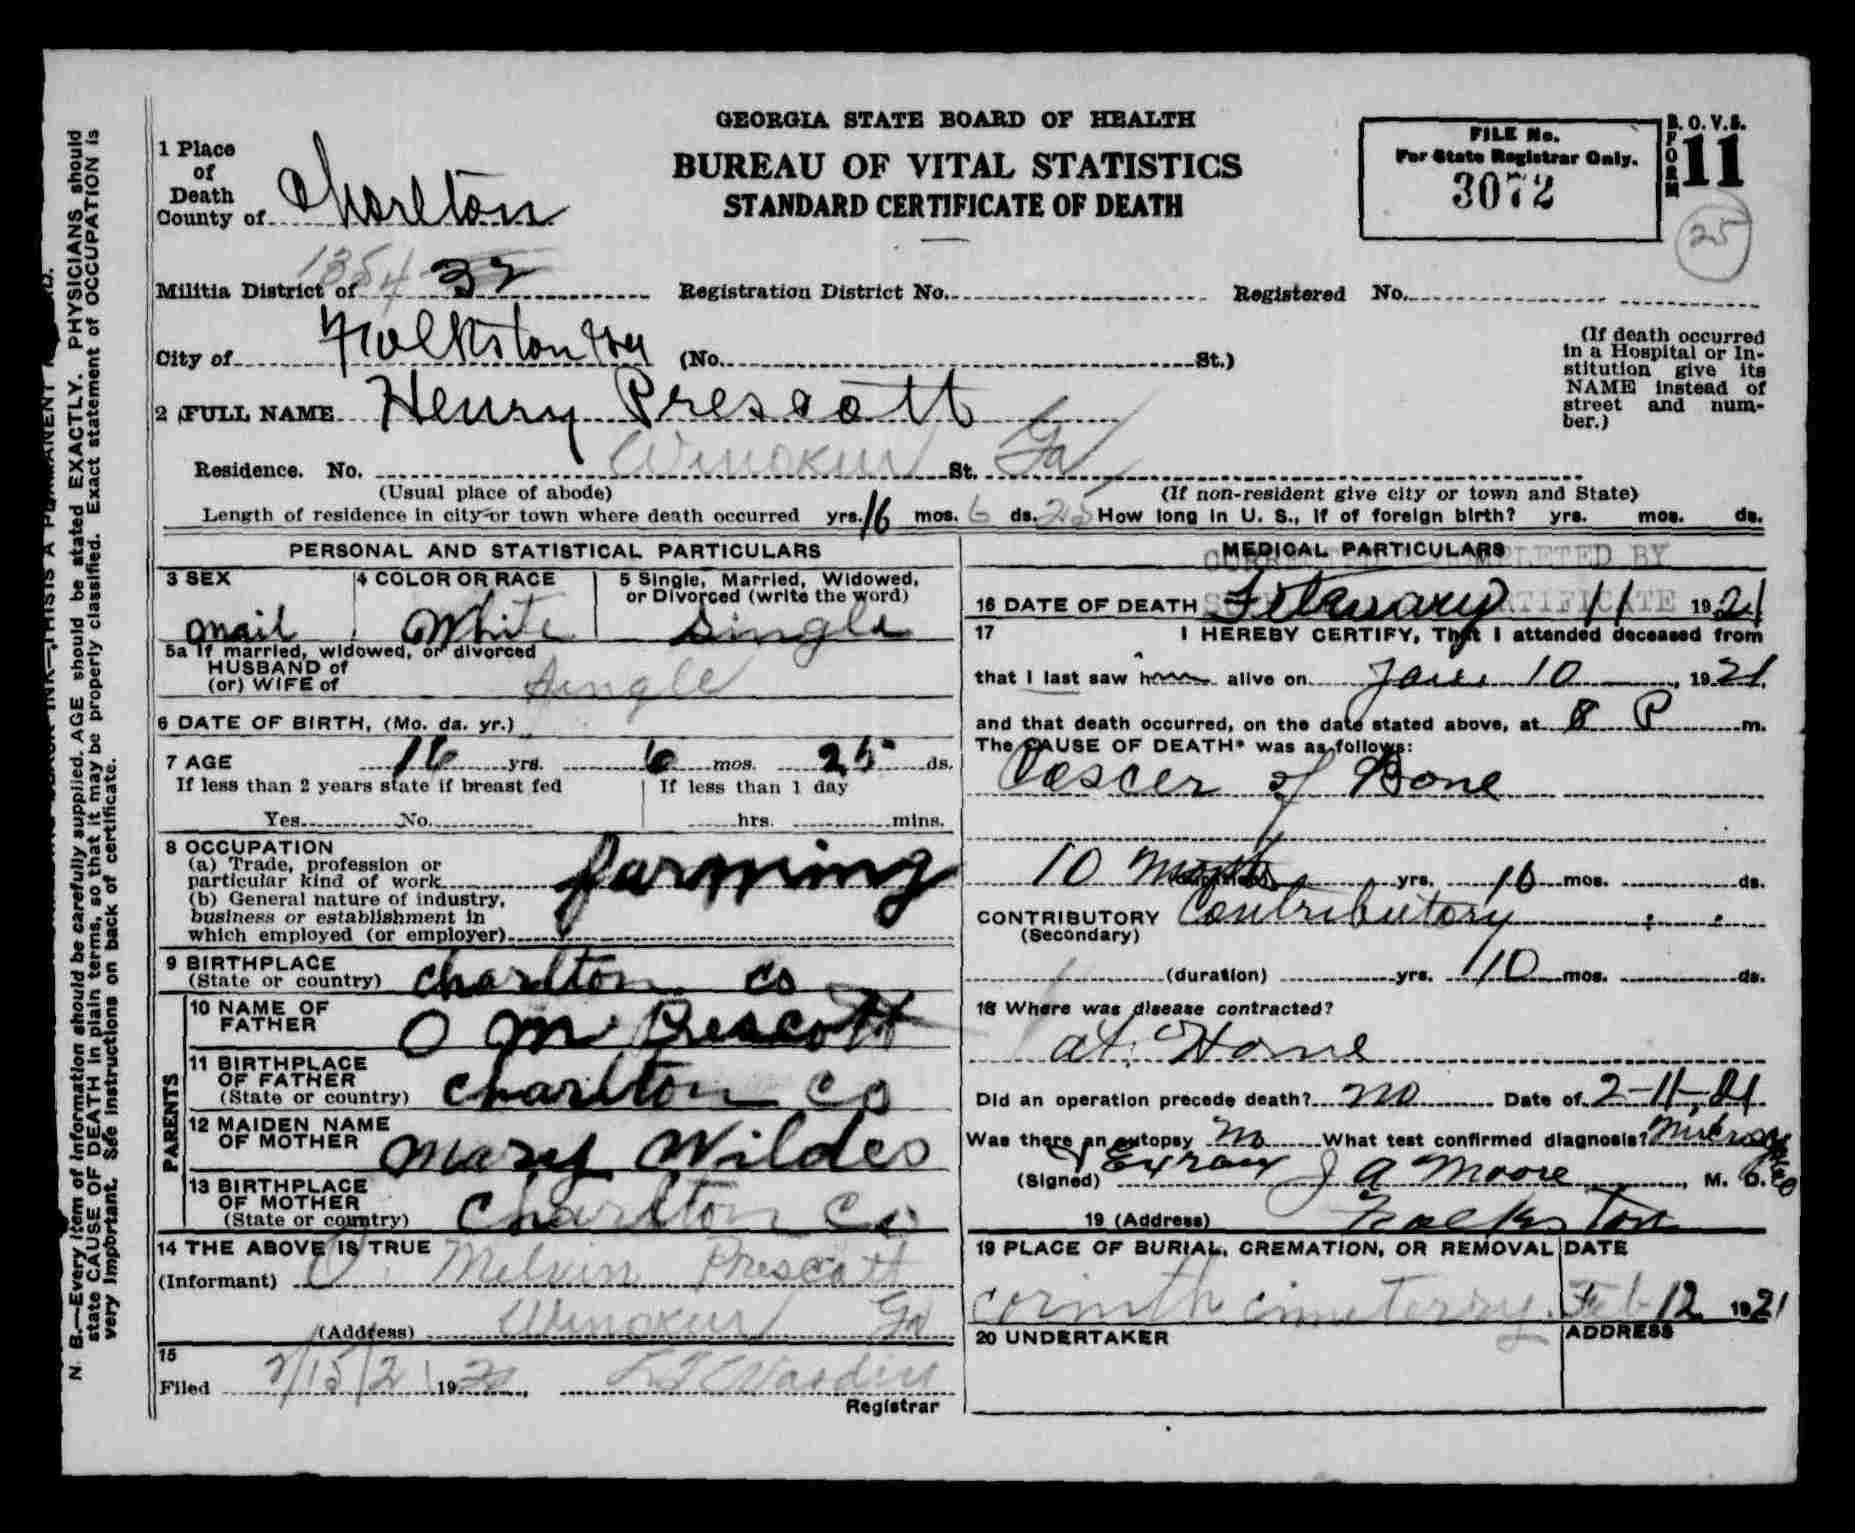 GEORGIA STATE BOARD OF HEALTH
BUREAU OF VITAL STATISTICS
STANDARD CERTIFICATE OF DEATH
FILE No.
For State Registrar Only.
3072
B. O. V. S.
FORM 11
25
1 Place of Death
County of Charlton
Militia District of 1354 32 Registration District No. Registered No.
City of Folkston Ga (No. St.)
(If death occurred in a Hospital or Institution give its NAME instead of street and number.)
2 FULL NAME Henry Prescott
Residence. No. Winokur St. Ga
(Usual place of abode) (If non-resident give city or town and State)
Length of residence in city or town where death occurred yrs. 16 mos. 6 ds. 25 How long in U. S., if of foreign birth? yrs. mos. ds.
PERSONAL AND STATISTICAL PARTICULARS
3 SEX
mail
4 COLOR OR RACE
White
5 Single, Married, Widowed, or Divorced (write the word)
Single
5a If married, widowed, or divorced
HUSBAND of
(or) WIFE of Single
6 DATE OF BIRTH, (Mo. da. yr.)
7 AGE 16 yrs. 6 mos. 25 ds.
If less than 2 years state if breast fed If less than 1 day
Yes No hrs. mins.
8 OCCUPATION
(a) Trade, profession or
particular kind of work farming
(b) General nature of industry,
business or establishment in
which employed (or employer)
9 BIRTHPLACE
(State or country) Charlton Co
PARENTS
10 NAME OF
FATHER O M Prescott
11 BIRTHPLACE
OF FATHER
(State or country) Charlton Co
12 MAIDEN NAME
OF MOTHER Mary Wildes
13 BIRTHPLACE
OF MOTHER
(State or country) Charlton Co
14 THE ABOVE IS TRUE
(Informant) O. Melvin Prescott
(Address) Winokur Ga
15
Filed 2/15/21 19
Registrar
MEDICAL PARTICULARS
CORRECTED COMPLETED BY
16 DATE OF DEATH February 11 1921
17 I HEREBY CERTIFY, That I attended deceased from
that I last saw him alive on Jan 10, 1921,
and that death occurred, on the date stated above, at 8 P m.
The CAUSE OF DEATH* was as follows:
Cascer of Bone
10 Months (duration) yrs. 10 mos. ds.
CONTRIBUTORY Contributory
(Secondary)
(duration) yrs. 10 mos. ds.
18 Where was disease contracted?
at Home
Did an operation precede death? no Date of 2-11-21
Was there an autopsy no What test confirmed diagnosis?
(Signed) J A Moore, M. D.
19 (Address) Folkston
19 PLACE OF BURIAL, CREMATION, OR REMOVAL DATE
Corinth cimeterry. Feb 12 1921
20 UNDERTAKER ADDRESS
N. B.—Every item of information should be carefully supplied. AGE should be stated EXACTLY. PHYSICIANS should
state CAUSE OF DEATH in plain terms, so that it may be properly classified. Exact statement of OCCUPATION is
very important. See instructions on back of certificate.